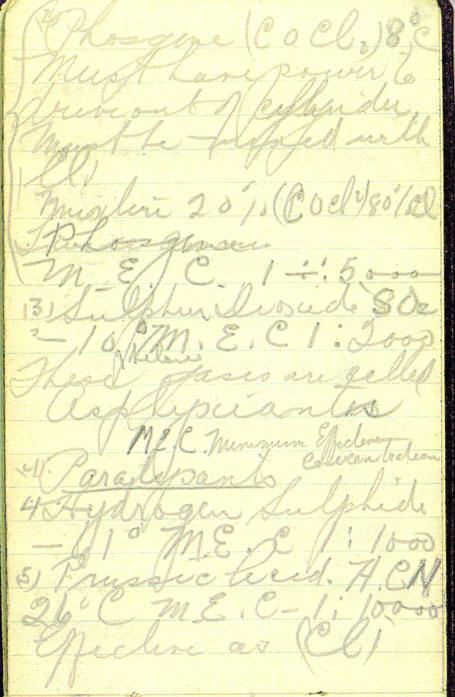 2) Phosgene (COCl2) 8°C
Must have power to
drive out of cylinder
Must be mixed with
Cl)
Mixture 20% (COCl2) 80% Cl
M. E. C. 1 ÷: 5000
(3) Sulphur Dioxide SO2
- 10° M. E. C 1 : 2000
These gases are called
Asphyxiants
M.E.C. Minimum Effective
Concentration
Paralysants
4 Hydrogen Sulphide
- 61° M.E.C 1 : 1000
5) Prussic Acid. H.CN
26°C M.E.C - 1 : 10000
Effective as (Cl)